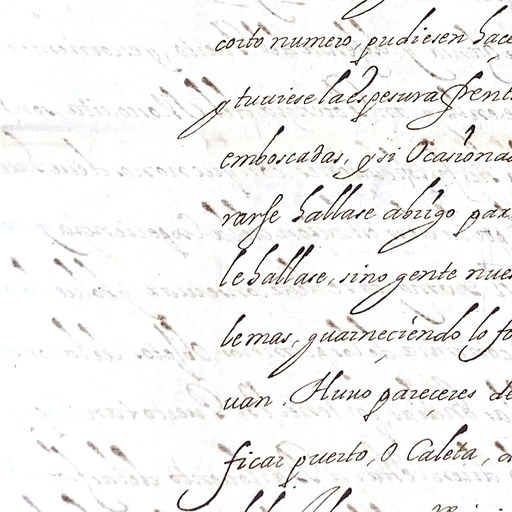 corto numero, pudiesen hace
y tuuiese la espesura frent
emboscadas, y si Ocasiona
rarse hallase abrigo par
le hallase, sino gente nues
le mas, guarneciendo lo fo
uan. Huuo pareceres de
ficar puerto, O Caleta,